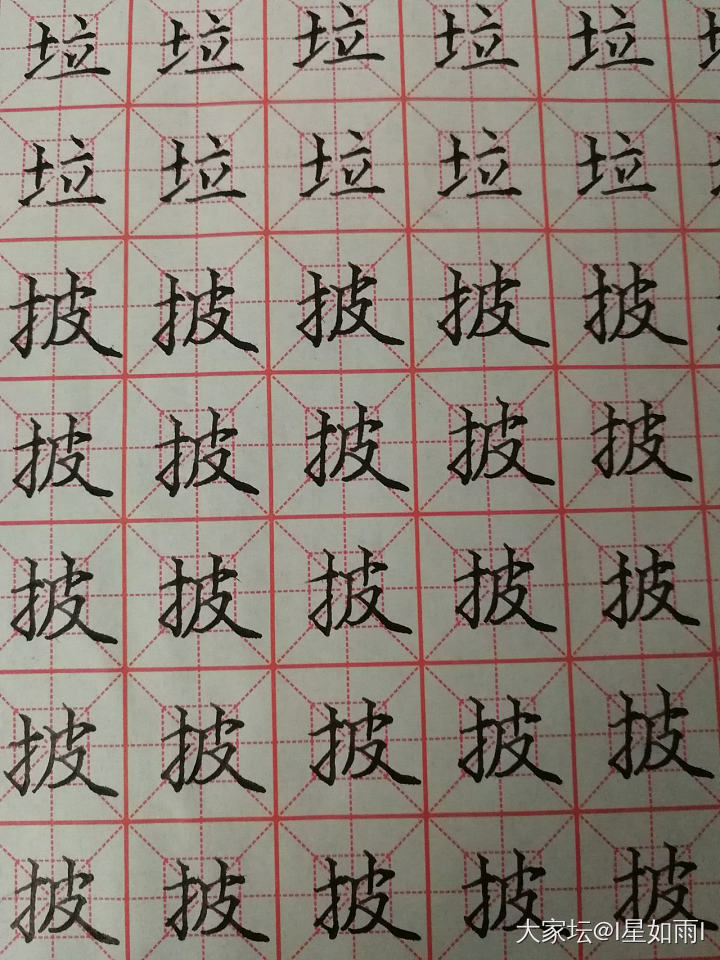 垃垃垃垃垃
垃垃垃垃垃
披披披披披
披披披披披
披披披披披
披披披披披
披披披披披
大家坛@l星如雨l